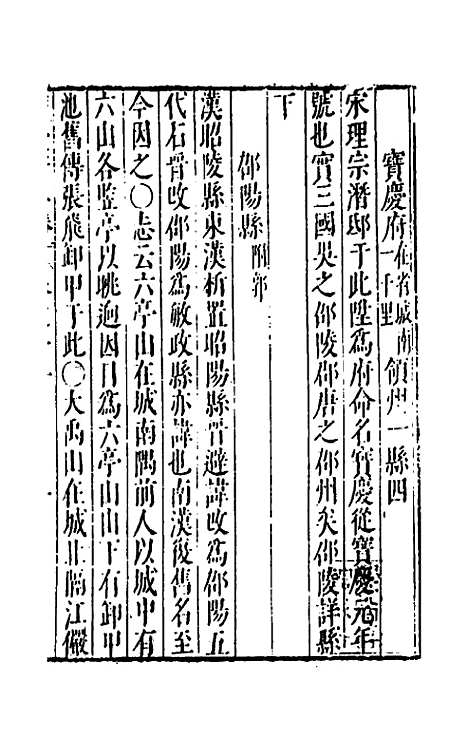 寶慶府在省城南一千里領州一縣四
宋理宗潛邸于此陞為府命名寶慶從寶慶元年
號也實三國吳之邵陵郡唐之邵州矣邵陵詳縣
下
邵陽縣附郭
漢昭陵縣東漢析置昭陽縣晉避諱改為邵陽五
代石晉改邵陽為敏政縣亦諱也南漢復舊名至
今因之○志云六亭山在城南隅前人以城中有
六山各豎亭以眺迥因目為六亭山山下有卸甲
池舊傳張飛卸甲于此○大禹山在城北隔江儼